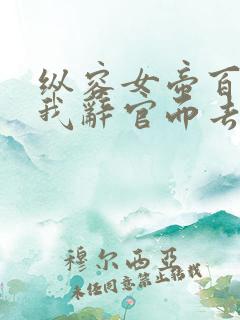 纵容女帝百
我辞官而去
穆尔西亚
未经同意禁止转载